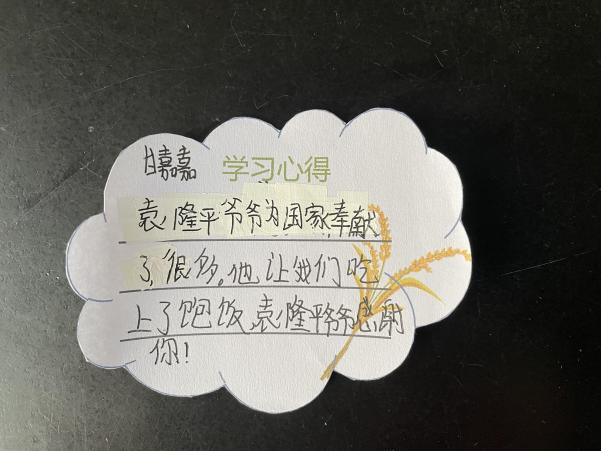 甘嘉嘉 学习心得
袁隆平爷爷为国家奉献
了很多。他让我们吃
上了饱饭,袁隆平爷爷感谢
你!